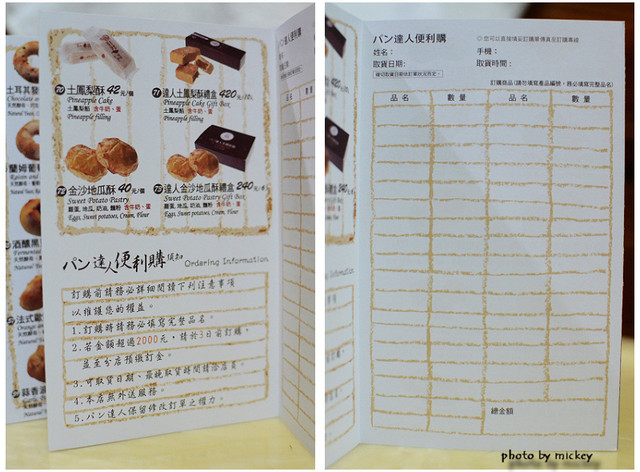 土鳳梨酥 42元/個
Pineapple Cake
土鳳梨餡 含牛奶、蛋
Pineapple filling
達人土鳳梨酥禮盒 420元/
Pineapple Cake Gift Box
土鳳梨餡 含牛奶、蛋
Pineapple filling
金沙地瓜酥 40元/個
Sweet Potato Pastry
雞蛋, 地瓜, 奶油, 麵粉 含牛奶、蛋
Eggs, Sweet potatoes, Cream, Flour
達人金沙地瓜酥禮盒 240元/
Sweet Potato Pastry Gift Box
雞蛋, 地瓜, 奶油, 麵粉 含牛奶、蛋
Eggs, Sweet potatoes, Cream, Flour
パン達人便利購須知 Ordering Information
訂購前請務必詳細閱讀下列注意事項
以維護您的權益。
1.訂購時請務必填寫完整品名。
2.若金額超過2000元，請於3日前訂購，
並至分店預繳訂金。
3.可取貨日期、最晚取貨時間請洽店員。
4.本店無外送服務。
5.パン達人保留修改訂單之權力。
パン達人便利購
姓名：
手機：
取貨日期:
取貨時間：
品名 數量 品名 數量
總金額
photo by mickey